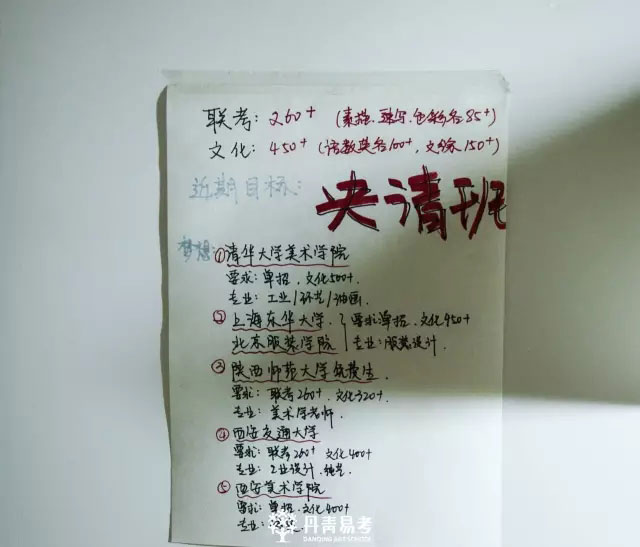 联考: 260+ (素描、速写、色彩各85+)
文化: 450+ (语数英各100+, 文综150+)
近期目标:
央清班
梦想:
①清华大学美术学院
要求: 单招, 文化500+
专业: 工业/环艺/油画.
②上海东华大学. 要求单招. 文化450+
北京服装学院 专业: 服装设计.
③陕西师范大学免费生.
要求: 联考260+. 文化520+
专业: 美术学老师.
④西安交通大学
要求: 联考260+ 文化400+
专业: 工业设计.
⑤西安美术学院
要求: 单招. 文化400+
专业:
丹青易考